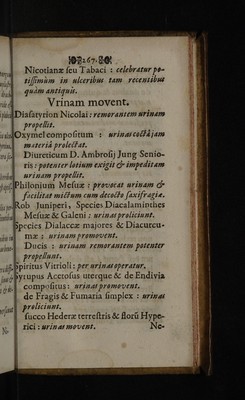 267.
Nicotianæ seu Tabaci : celebratur po-
tissimùm in ulceribus tam recentibus
quàm antiquis.
Vrinam movent.
Diasatyrion Nicolai : remorantem urinam
propellit.
Oxymel compositum : urinas coctâ jam
materiâ prolectat.
Diureticum D. Ambrosij Jung Senio-
ris : potenter lotium exigit & impeditam
urinam propellit.
Philonium Mesuæ : provocat urinam &
facilitat mictum cum decocto saxifragiæ.
Rob Juniperi, Species Diacalaminthes
Mesuæ & Galeni : urinas proliciunt.
Species Dialaccæ majores & Diacurcu-
mæ : urinam promovent.
Ducis : urinam remorantem potenter
propellunt.
Spiritus Vitrioli : per urinas operatur.
Syrupus Acetosus uterque & de Endivia
compositus : urinas promovent.
de Fragis & Fumaria simplex : urinas
proliciunt.
succo Hederæ terrestris & florū Hype-
rici : urinas movent.
Ne-